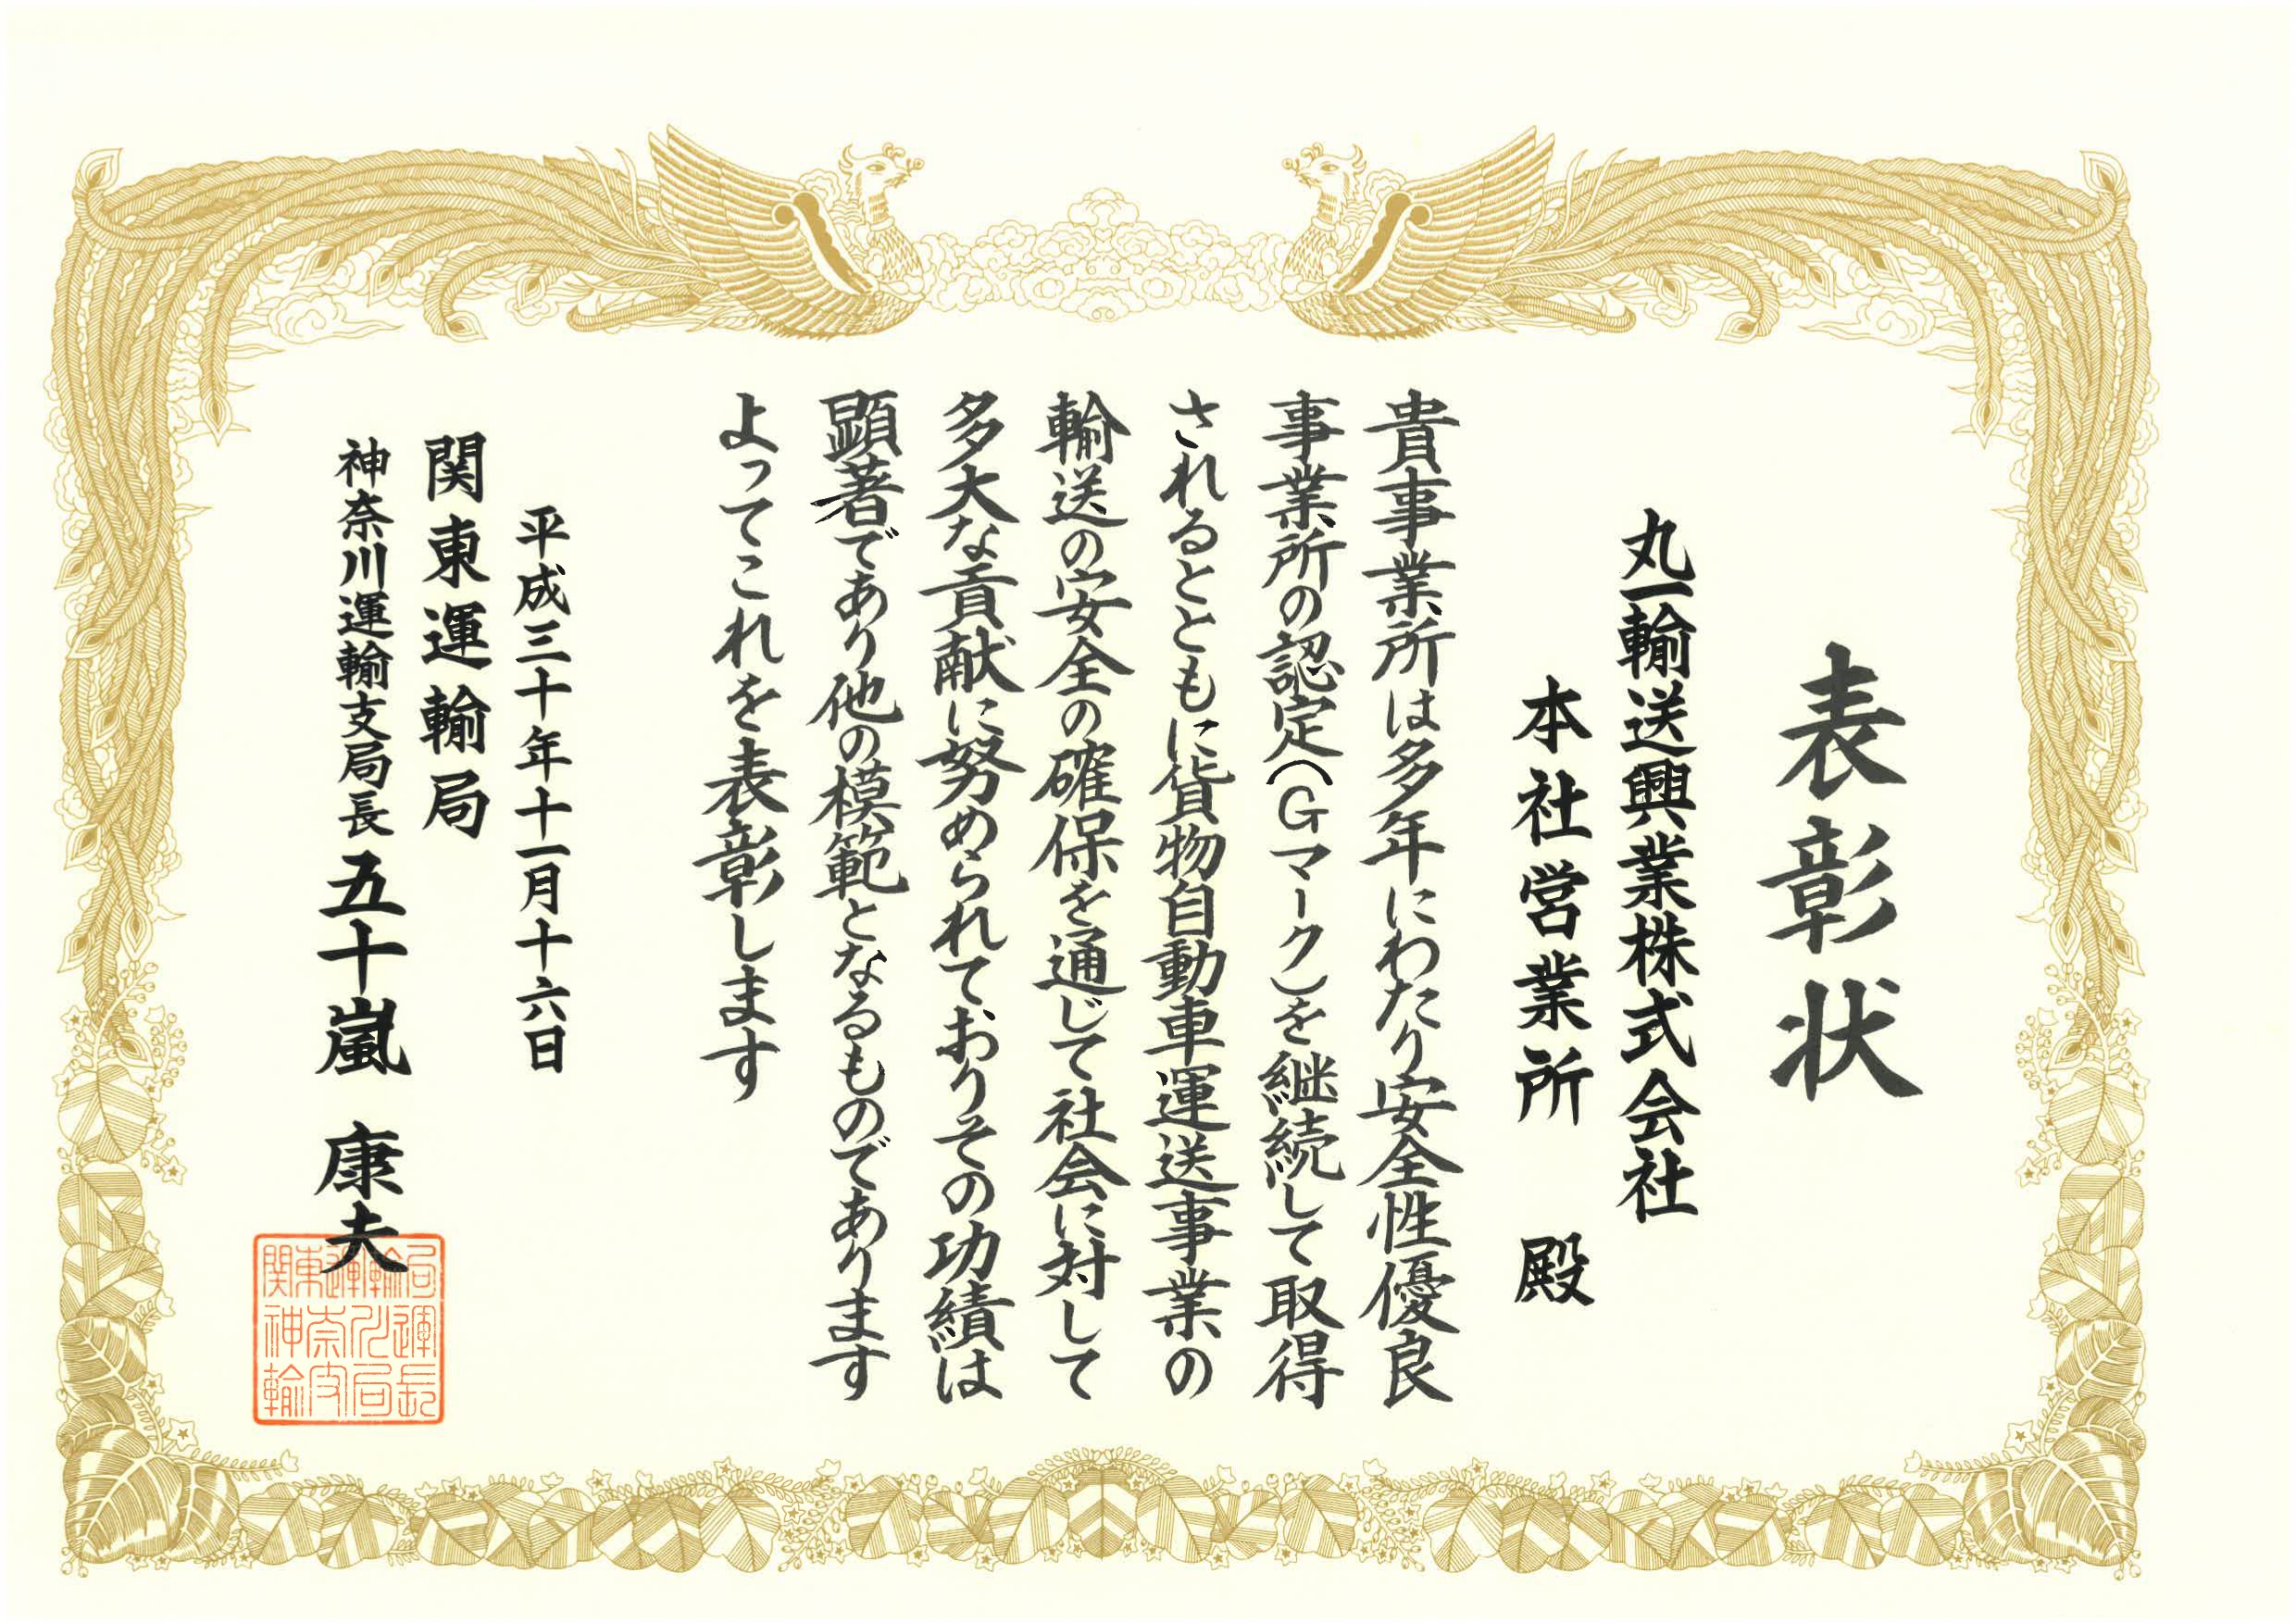 表彰状
丸一輸送興業株式会社
本社営業所 殿
貴事業所は多年にわたり安全性優良
事業所の認定(Gマーク)を継続して取得
されるとともに貨物自動車運送事業の
輸送の安全の確保を通じて社会に対して
多大な貢献に努められておりその功績は
顕著であり他の模範となるものであります
よってこれを表彰します
平成三十年十一月十六日
関東運輸局
神奈川運輸支局長 五十嵐 康夫
関東運輸局
神奈川運
輸支局長